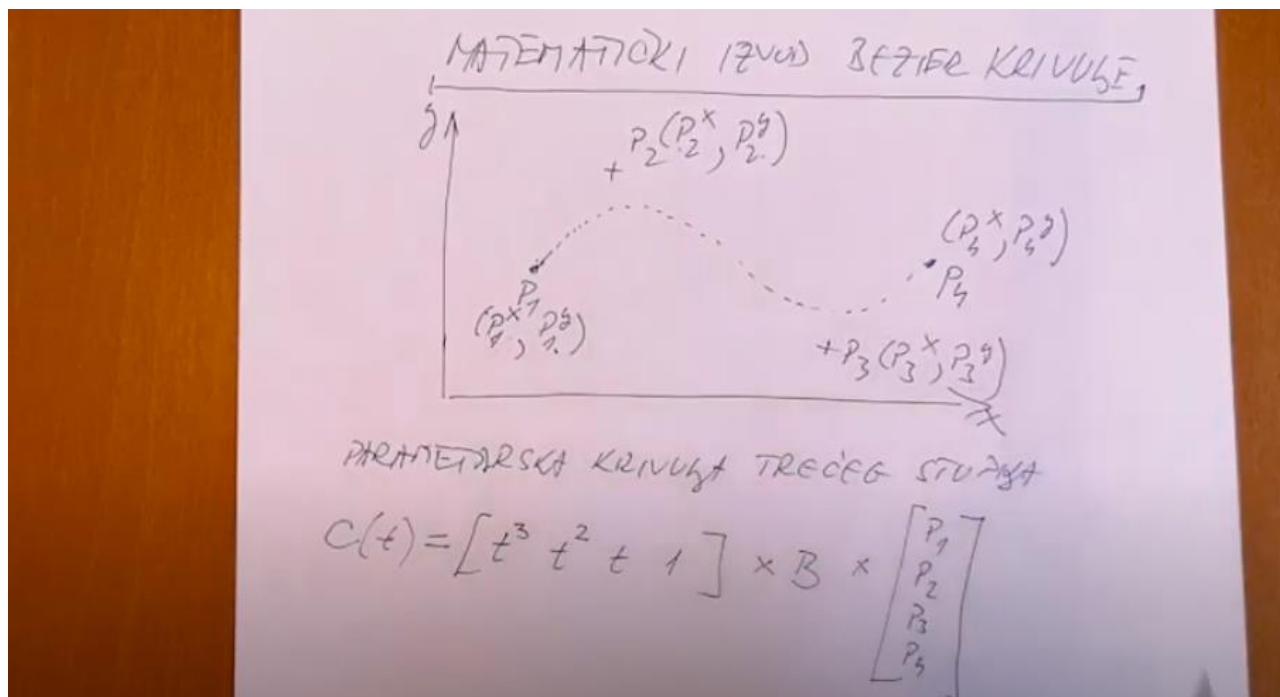 MATEMATIČKI IZVOD BEZIER KRIVULJE
y
P₂(P₂ˣ, P₂ʸ)
+
(P₄ˣ, P₄ʸ)
P₄
P₁
(P₁ˣ, P₁ʸ)
+P₃(P₃ˣ, P₃ʸ)
x
PARAMETARSKA KRIVULJA TREĆEG STUPNJA
C(t) = [t³ t² t 1] × B × [P₁
P₂
P₃
P₄]